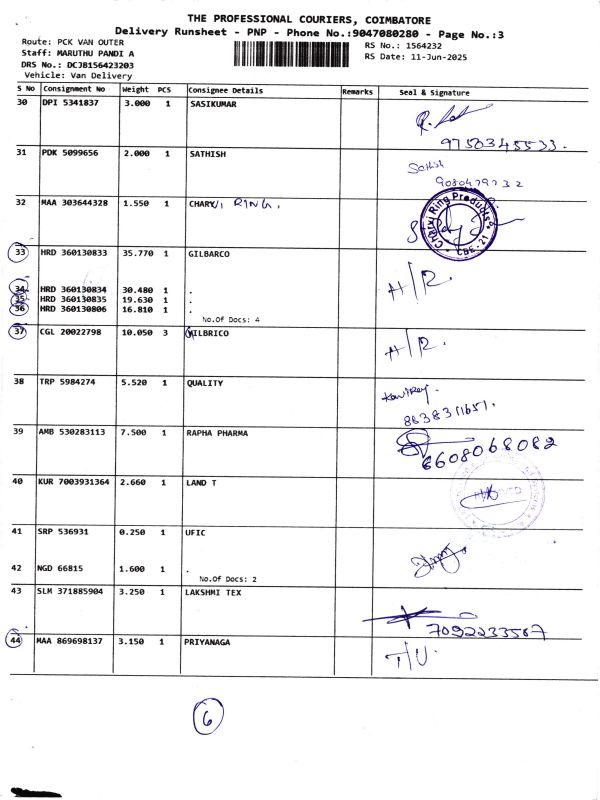 THE PROFESSIONAL COURIERS, COIMBATORE
Delivery Runsheet - PNP - Phone No.:9047080280 - Page No.:3
Route: PCK VAN OUTER
RS No.: 1564232
Staff: MARUTHU PANDI A
RS Date: 11-Jun-2025
DRS No.: DCJB156423203
Vehicle: Van Delivery
S No Consignment No Weight PCS Consignee Details Remarks Seal & Signature
30 DPI 5341837 3.000 1 SASIKUMAR
9750345533.
31 PDK 5099656 2.000 1 SATHISH
Sathish
32 MAA 303644328 1.550 1 CHARY RING.
Chaixi Ring Products CBE-21
33 HRD 360130833 35.770 1 GILBARCO
A/R.
34 HRD 360130834 30.480 1 .
35 HRD 360130835 19.630 1 .
36 HRD 360130806 16.810 1 .
No.Of Docs: 4
37 CGL 20022798 10.050 3 GILBRICO
A/R.
38 TRP 5984274 5.520 1 QUALITY
8838311651.
39 AMB 530283113 7.500 1 RAPHA PHARMA
6608068082
40 KUR 7003931364 2.660 1 LAND T
41 SRP 536931 0.250 1 UFIC
42 NGD 66815 1.600 1 .
No.Of Docs: 2
43 SLM 371885904 3.250 1 LAKSHMI TEX
7092233567
44 MAA 869698137 3.150 1 PRIYANAGA
T/U.
6